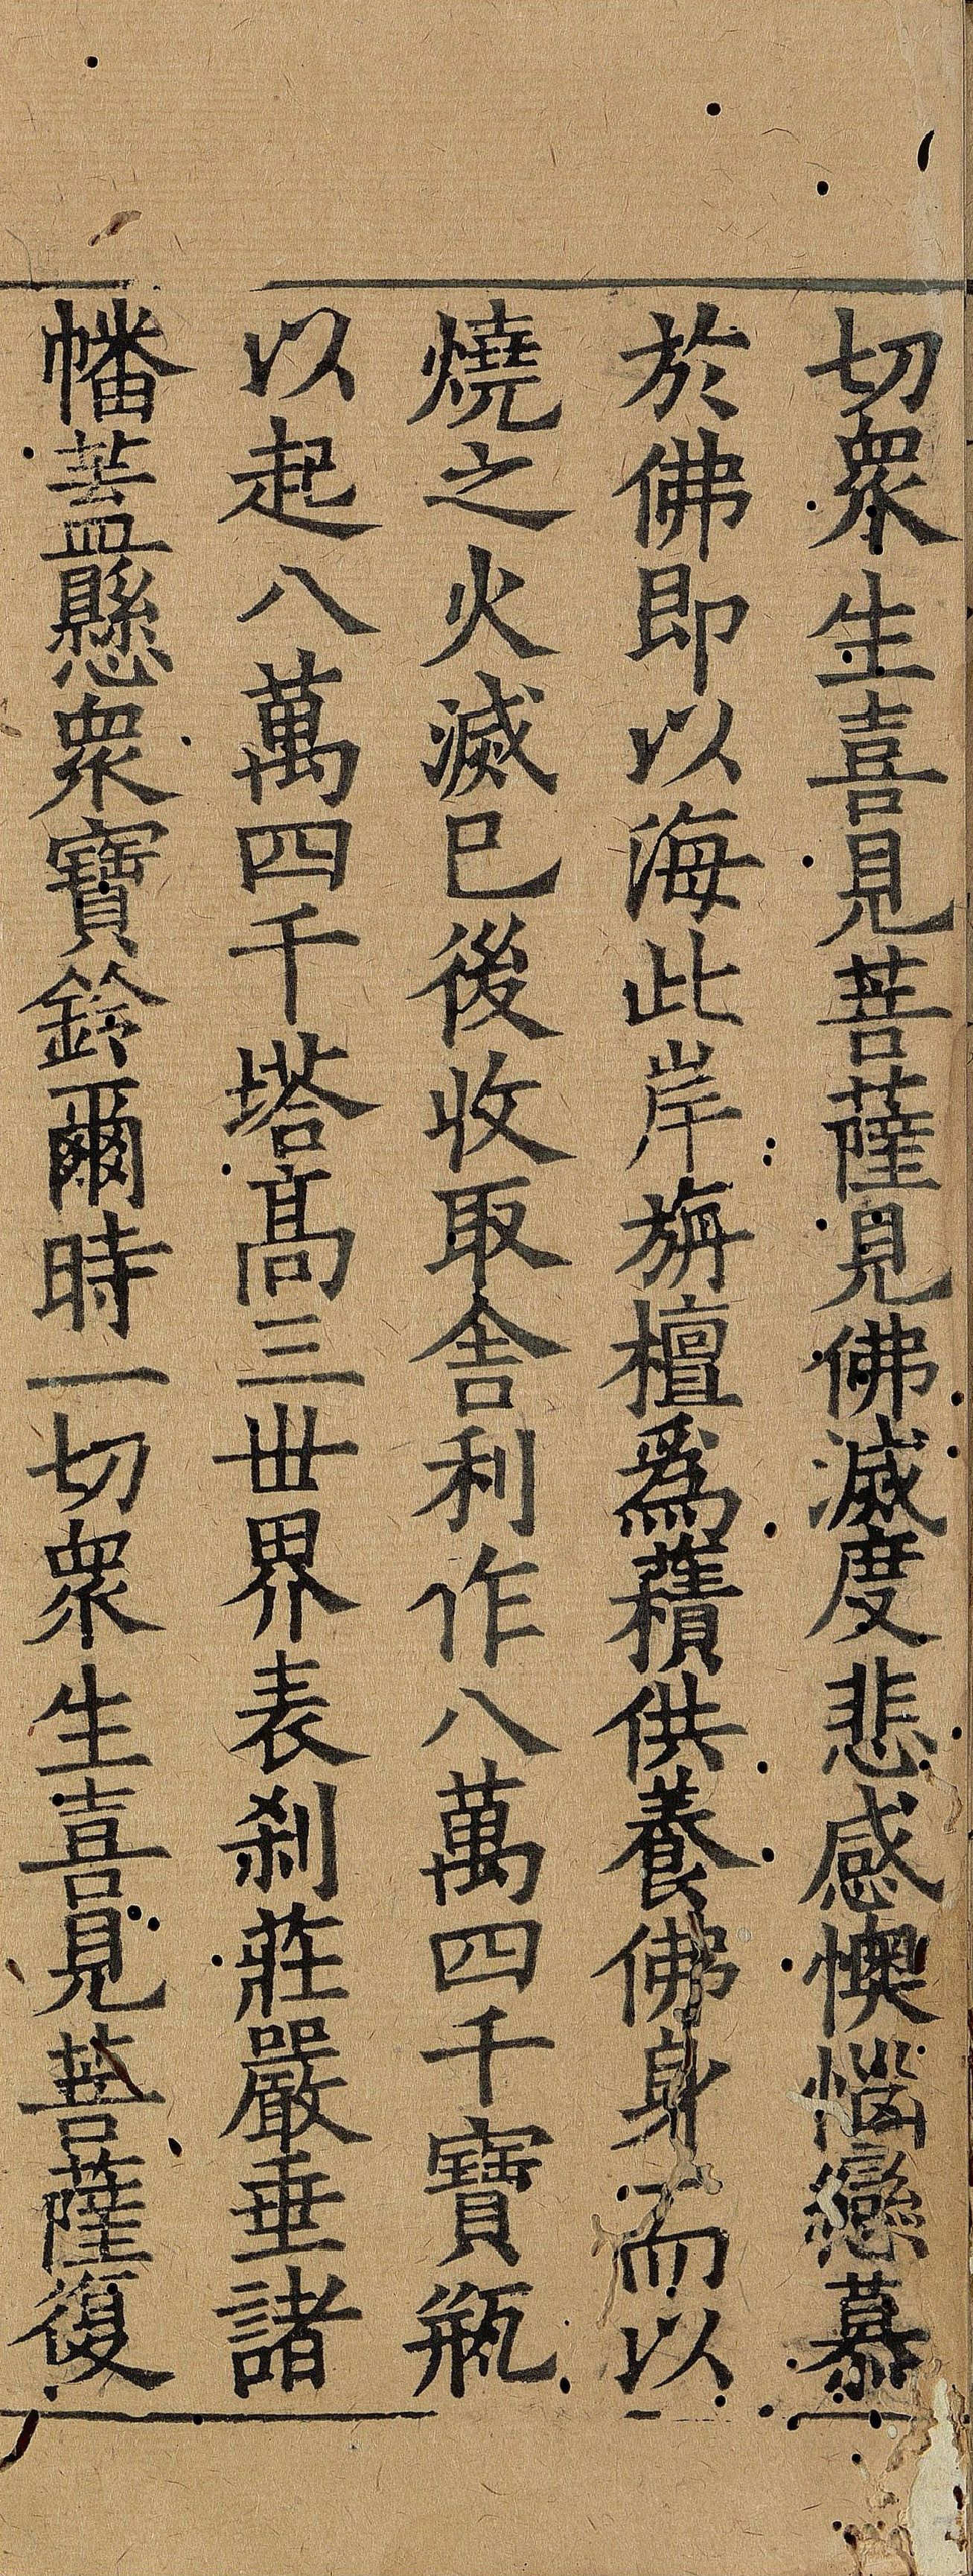 切衆生喜見菩薩見佛滅度悲感懊惱戀慕
於佛即以海此岸旃檀爲𧂐供養佛身而以
燒之火滅已後收取舍利作八萬四千寶瓶
以起八萬四千塔髙三世界表刹莊嚴垂諸
幡盖懸衆寶鈴爾時一切衆生喜見菩薩復